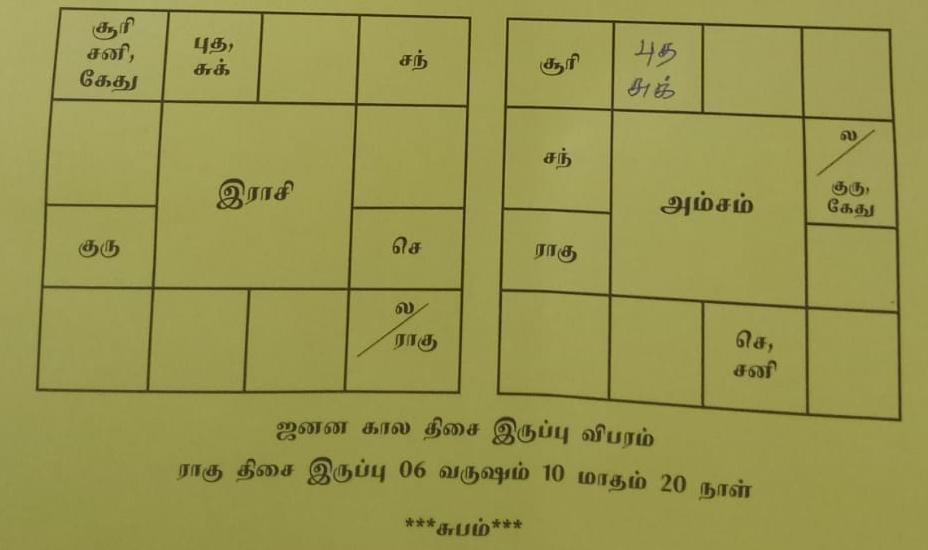 சூரி
சனி,
கேது
புத,
சுக்
சந்
இராசி
குரு
செ
ல
ராகு
சூரி
புத
சுக்
சந்
ல
குரு,
கேது
அம்சம்
ராகு
செ,
சனி
ஜனன கால திசை இருப்பு விபரம்
ராகு திசை இருப்பு 06 வருஷம் 10 மாதம் 20 நாள்
***சுபம்***